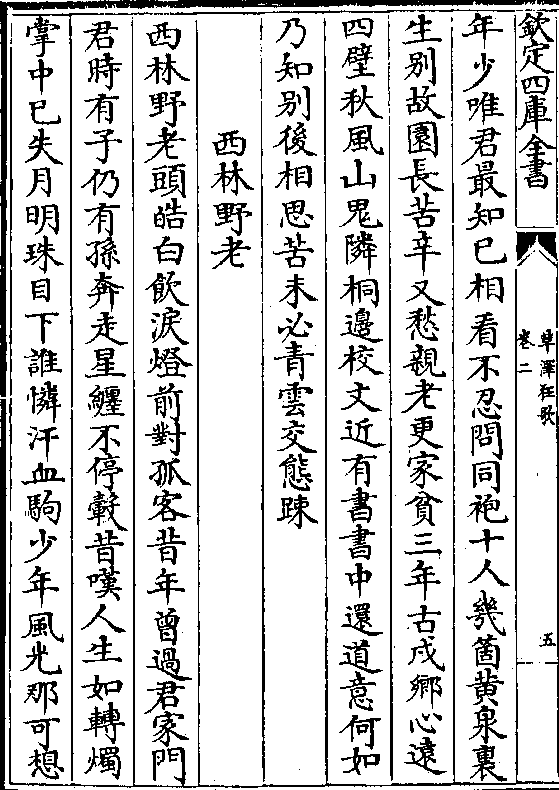 欽定四庫全書
草澤狂歌
卷二
五
年少唯君最知已相看不忍問同袍十人幾箇黄泉裏
生别故園長苦辛又愁親老更家貧三年古戍鄉心遠
四壁秋風山鬼隣桐邊校文近有書書中還道意何如
乃知别後相思苦未必青雲交態踈
西林野老
西林野老頭皓白飲淚燈前對孤客昔年曾過君家門
君時有子仍有孫奔走星纏不停轂昔嘆人生如轉燭
掌中已失月明珠目下誰憐汗血駒少年風光那可想